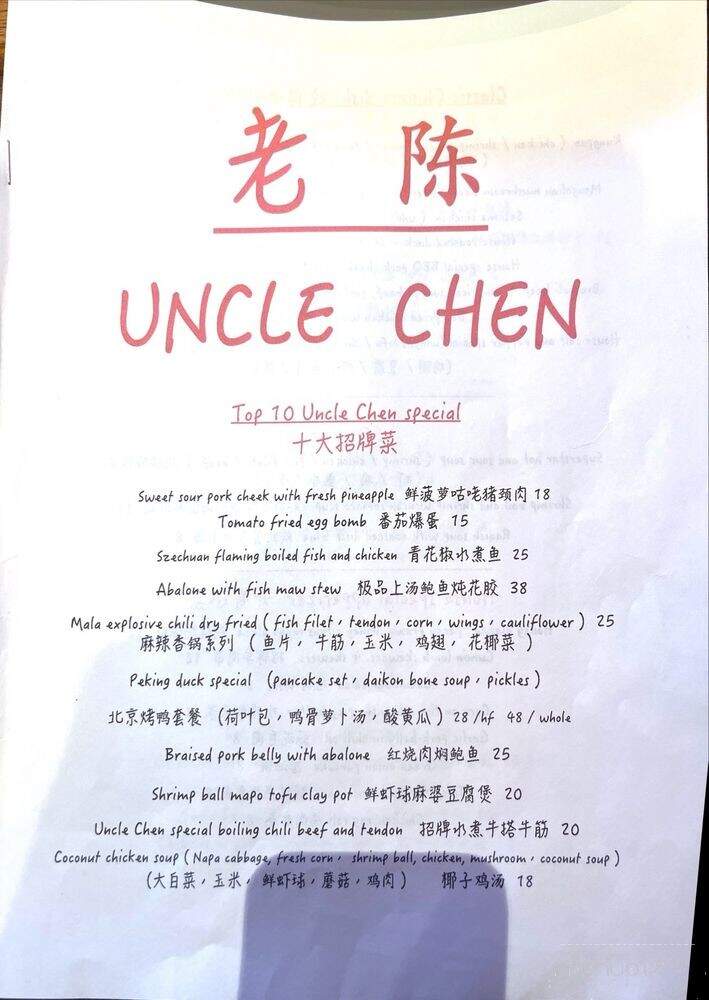 老 陈
UNCLE CHEN
Top 10 Uncle Chen special
十大招牌菜
Sweet sour pork cheek with fresh pineapple 鲜菠萝咕咾猪颈肉 18
Tomato fried egg bomb 番茄爆蛋 15
Szechuan flaming boiled fish and chicken 青花椒水煮鱼 25
Abalone with fish maw stew 极品上汤鲍鱼炖花胶 38
Mala explosive chili dry fried ( fish filet , tendon , corn , wings , cauliflower ) 25
麻辣香锅系列 ( 鱼片, 牛筋, 玉米, 鸡翅, 花椰菜 )
Peking duck special (pancake set, daikon bone soup, pickles )
北京烤鸭套餐 (荷叶包, 鸭骨萝卜汤, 酸黄瓜 ) 28 /hf 48 / whole
Braised pork belly with abalone 红烧肉焖鲍鱼 25
Shrimp ball mapo tofu clay pot 鲜虾球麻婆豆腐煲 20
Uncle Chen special boiling chili beef and tendon 招牌水煮牛搭牛筋 20
Coconut chicken soup ( Napa cabbage, fresh corn , shrimp ball, chicken, mushroom , coconut soup )
(大白菜, 玉米, 鲜虾球, 蘑菇, 鸡肉 ) 椰子鸡汤 18